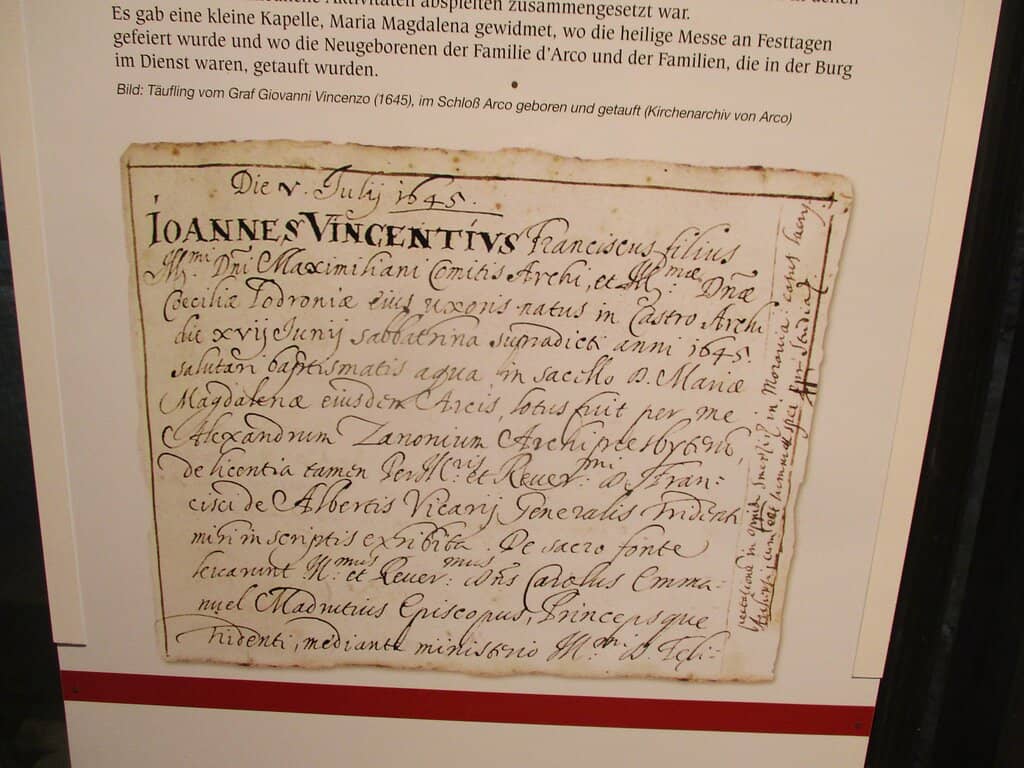 Aktivitäten abspielten zusammengesetzt war.
Es gab eine kleine Kapelle, Maria Magdalena gewidmet, wo die heilige Messe an Festtagen
gefeiert wurde und wo die Neugeborenen der Familie d'Arco und der Familien, die in der Burg
im Dienst waren, getauft wurden.
Bild: Täufling vom Graf Giovanni Vincenzo (1645), im Schloß Arco geboren und getauft (Kirchenarchiv von Arco)
Die V. Julij 1645.
IOANNES VINCENTIVS Franciscus filius
Dni Maximiliani Comitis Archi, et Dnæ
Cœciliæ Lodroniæ eius uxoris natus in Castro Archi
die xvij Junij sabbathina supradicti anni 1645.
salutari baptismatis aqua in sacello D. Mariæ
Magdalenæ eiusdem Arcis, lotus fuit per me
Alexandrum Zanonium Archipresbyterū,
de licentia tamen Per et Reuer: D. Fran-
cisci de Albertis Vicarij Generalis Tridenti
mihi in scriptis exhibita. De sacro fonte
leuarunt et Reuer: Dns Carolus Emma-
nuel Madrutius Episcopus, Princepsque
Tridenti, mediante ministerio D. Feli-